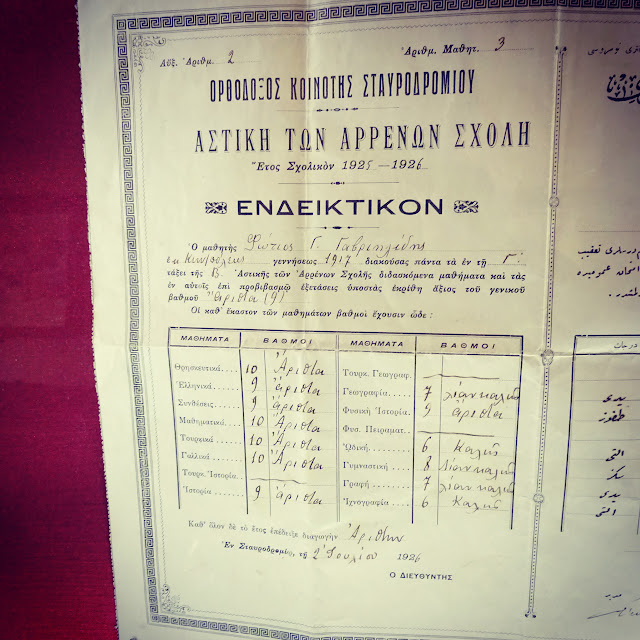 Αὔξ. Ἀριθμ. 2
Ἀριθμ. Μαθητ. 3
ΟΡΘΟΔΟΞΟΣ ΚΟΙΝΟΤΗΣ ΣΤΑΥΡΟΔΡΟΜΙΟΥ
ΑΣΤΙΚΗ ΤΩΝ ΑΡΡΕΝΩΝ ΣΧΟΛΗ
Ἔτος Σχολικὸν 1925—1926
ΕΝΔΕΙΚΤΙΚΟΝ
Ὁ μαθητὴς Φώτιος Γ. Γαβριηλίδης
ἐκ Κων/πόλεως γεννήσεως 1917 διακούσας πάντα τὰ ἐν τῇ Γ΄.
τάξει τῆς Β. Ἀστικῆς τῶν Ἀρρένων Σχολῆς διδασκόμενα μαθήματα καὶ τὰς
ἐν αὐτοῖς ἐπὶ προβιβασμῷ ἐξετάσεις ὑποστὰς ἐκρίθη ἄξιος τοῦ γενικοῦ
βαθμοῦ Ἄριστα (9)
Οἱ καθ' ἕκαστον τῶν μαθημάτων βαθμοὶ ἔχουσιν ὧδε :
ΜΑΘΗΜΑΤΑ ΒΑΘΜΟΙ
Θρησκευτικά . . 10 Ἄριστα
Ἑλληνικά . . . . 9 ἄριστα
Συνθέσεις . . . . 9 ἄριστα
Μαθηματικά . . 10 Ἄριστα
Τουρκικά . . . . 10 Ἄριστα
Γαλλικά . . . . 10 Ἄριστα
Τουρκ. Ἱστορία.
Ἱστορία . . . . . . 9 ἄριστα
ΜΑΘΗΜΑΤΑ ΒΑΘΜΟΙ
Τουρκ. Γεωγραφ.
Γεωγραφία . . . . 7 λίαν καλῶς
Φυσικὴ Ἱστορία. 9 ἄριστα
Φυσ. Πειραματ.
ᾨδική . . . . . . 6 Καλῶς
Γυμναστική . . . 8 Λίαν καλῶς
Γραφή . . . . . . 7 λίαν καλῶς
Ἰχνογραφία . . . 6 Καλῶς
Καθ' ὅλον δὲ τὸ ἔτος ἐπέδειξε διαγωγὴν Ἀρίστην
Ἐν Σταυροδρομίῳ, τῇ 2 Ἰουλίου 1926
Ο ΔΙΕΥΘΥΝΤΗΣ